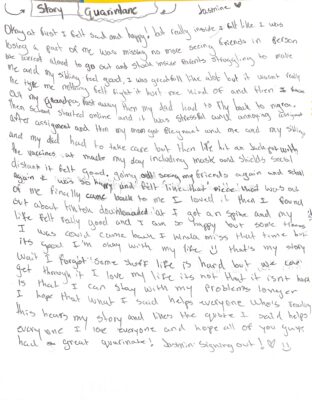 Story Quarintane Jasmine ♡
Okay at first I felt sad and happy! but really inside I felt like I was
losing a part of me was missing no more seeing friends in person
we weren't aloud to go out and stuck inside Parents struggling to make
me and my sibling feel good, I was greatfull like alot but it wasnt really
the type me nothing felt right it hurt me kind of and then I
out my grandpa past away then my dad had to fly back to
Then school started online and it was stressful and annoying
after assignment and then my mom got Pregnant and me and my sibling
and my dad had to take care but then life hit as back got with
the vaccines. at made my day including masks and shields social
distant it felt good, going seeing my friends again and school
again I was so happy and felt like that piece that was out
of me finally came back to me I loved it then I found
out about tiktok downloaded at I got an Iphone and my
life felt really good and I am so happy but some times
I was could come back I kinda miss that time but
its good I'm okay with my life :) that's my story
wait I forgot "Some stuff life is hard but we can
get through it I love my life its not that it isnt hard
Is that I can stay with my problems longer
I hope that what I said helps everyone who's reading
this hears my story and likes the quote I said helps
every one I love everyone and hope all of you guys
had a great quarinate! Jasmin signing out! ♡ :)